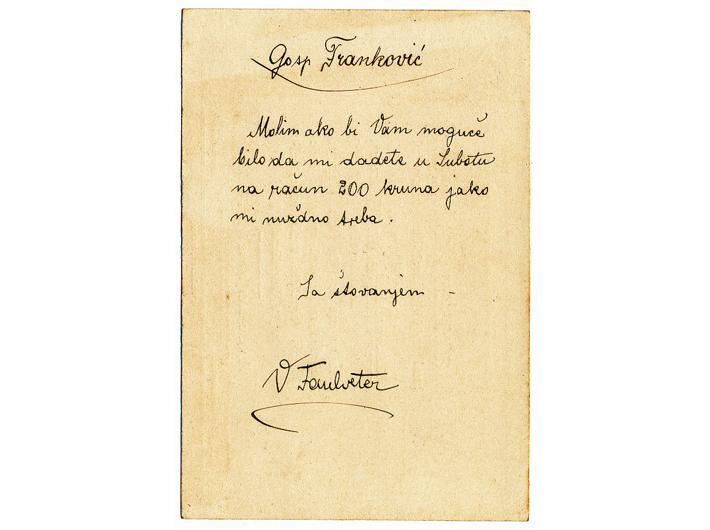 Gosp Franković
Molim ako bi Vam moguče
bilo da mi dadete u Subotu
na račun 200 kruna jako
mi nuždno treba.
Sa štovanjem -
V Faulveter